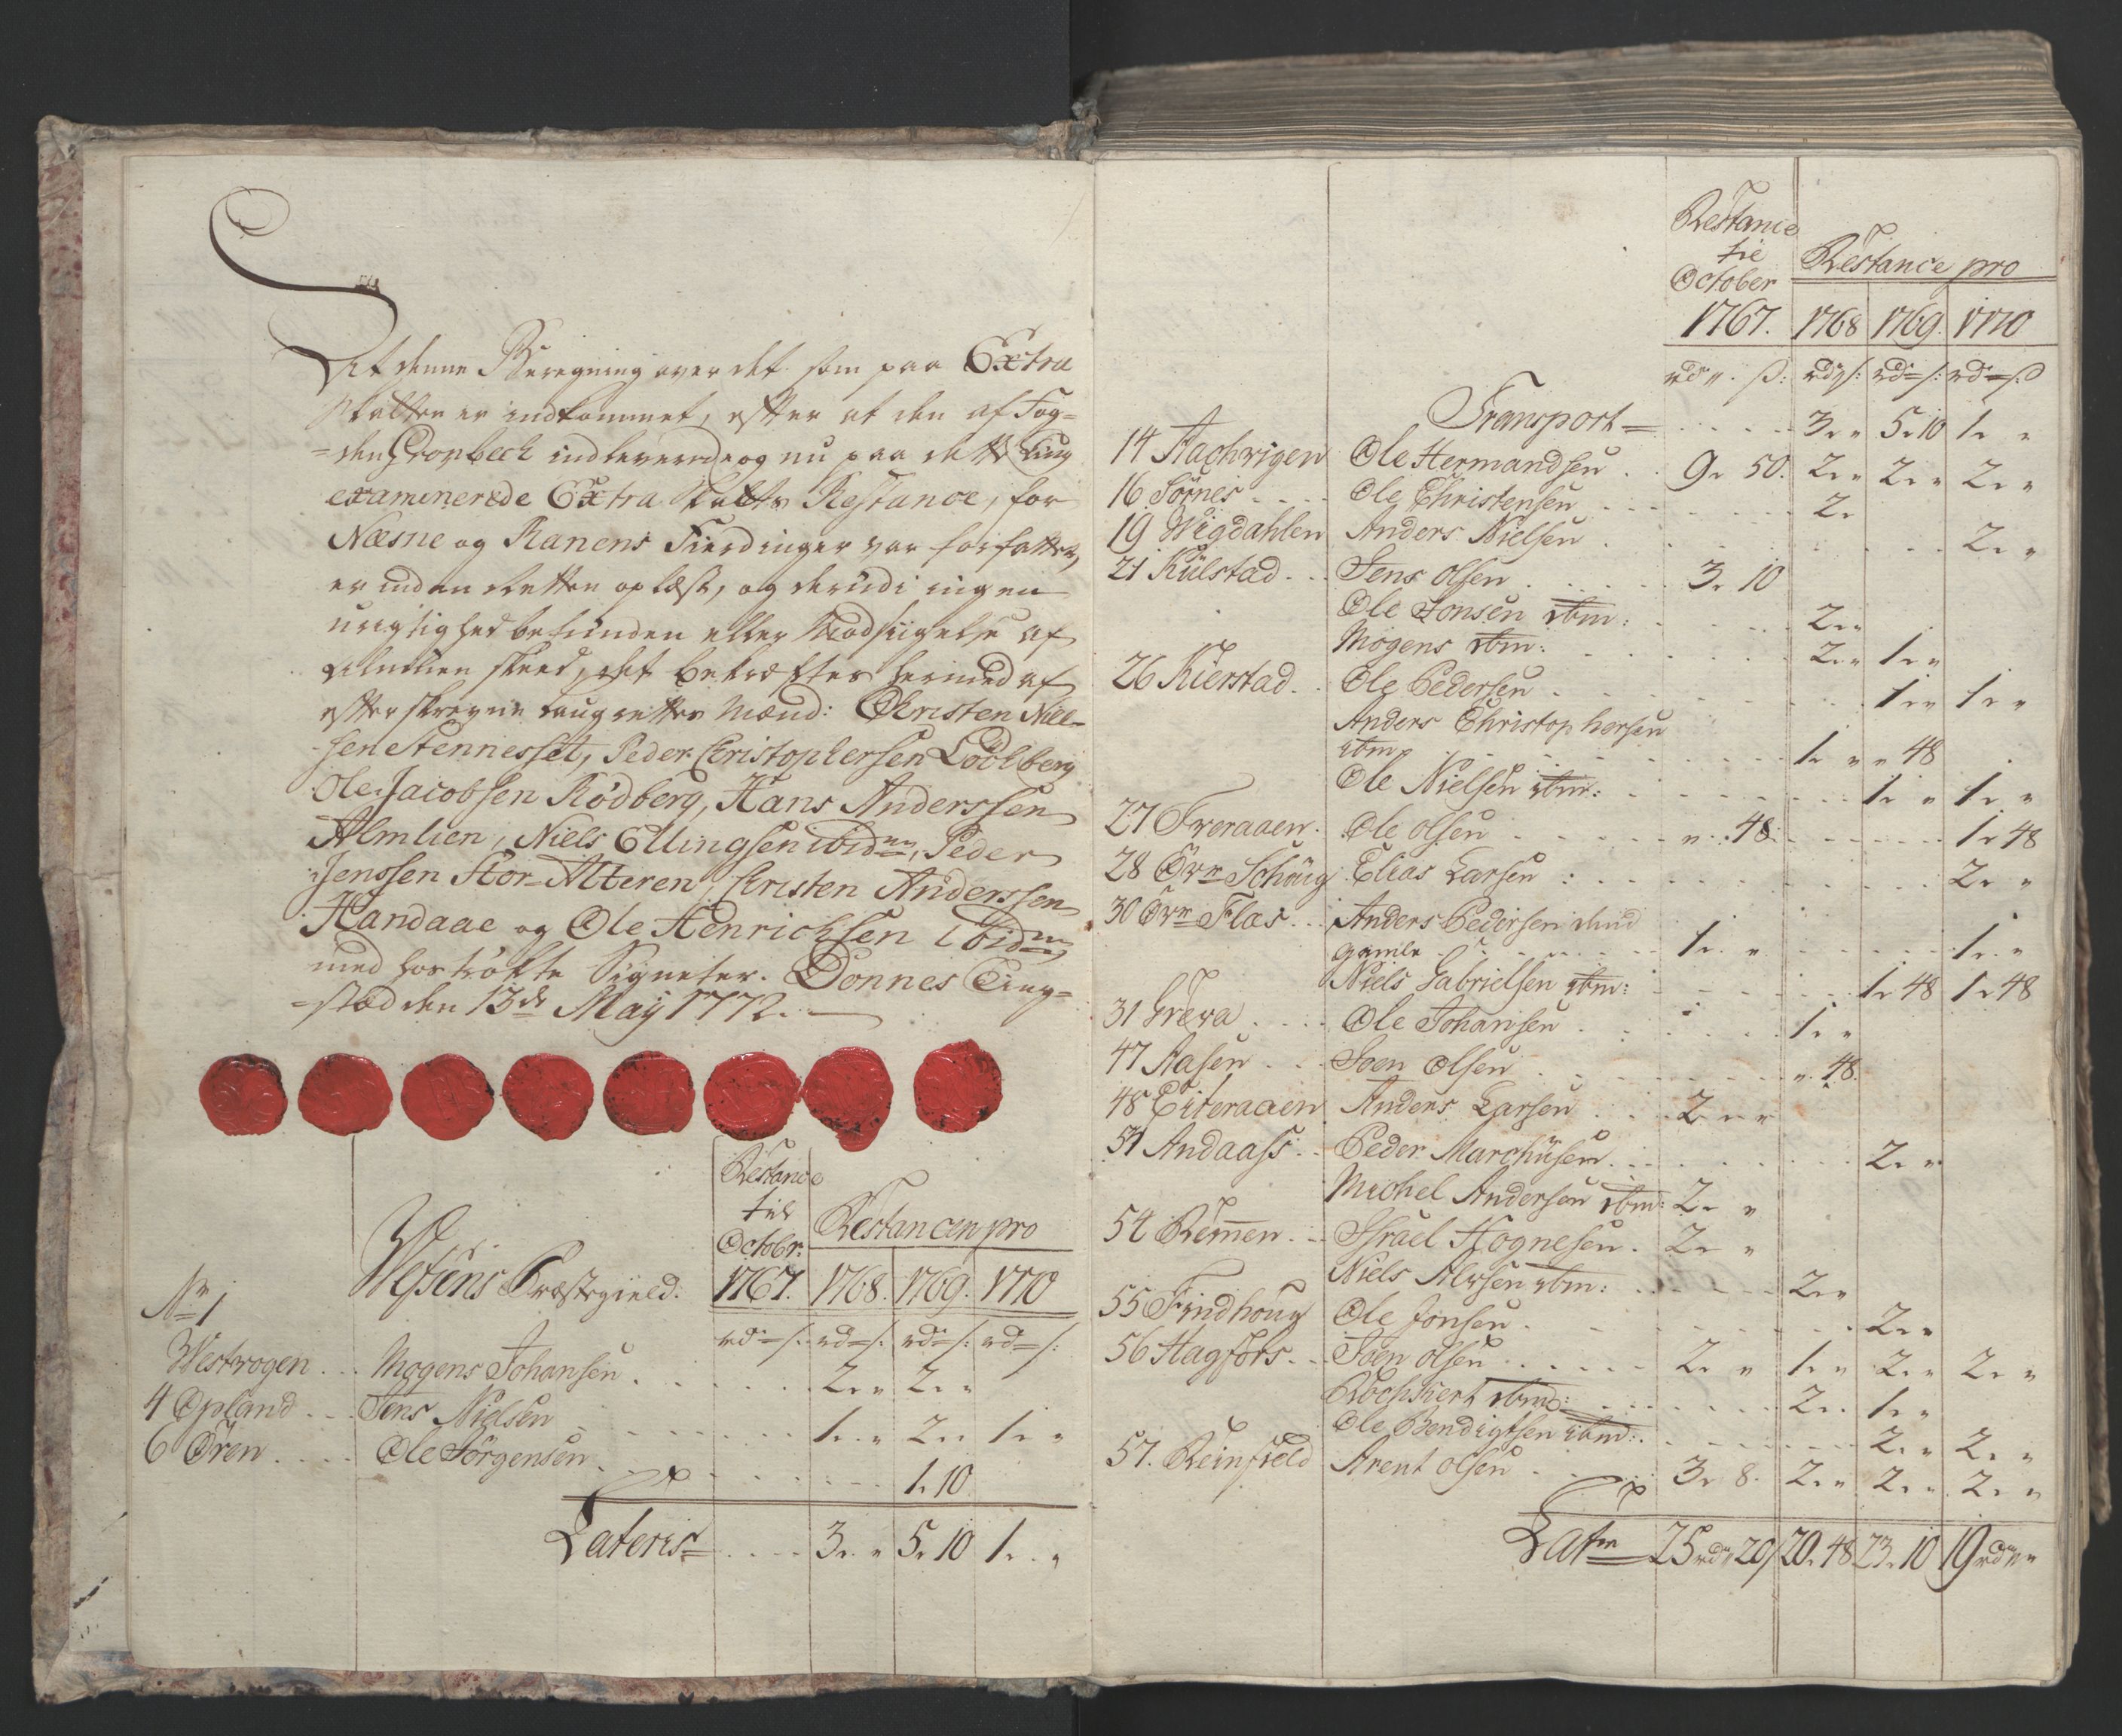 At denne Beregning over det som paa Extra
Skatten er indkommet, efter at den af Fog=
=den Gronbeck indleverede og nu paa dette Ting
examinerede Extra Skatts Restance, for
Næsne og Ranens Fierdinger var forfattet,
er inden Retten oplæst, og derudi ingen
urigtighed befunden eller Modsigelse af
Almuen skeed, det bekræftes hermed af
efterskrevne Laugrettes Mænd: Christen Niel=
=sen Stennesset, Peder Christophersen
Ole Jacobsen Rödberg, Hans Anderssen
Almlien, Niels Ellingsen ibidm, Peder
Jenssen Stor-Alteren, Christen Anderssen
Handaae og Ole Henrichsen ibidm
med hoströkte Signeter. Dönnes Ting=
=stæd den 13de Maij 1772.
Restance
til
Octobr:
1767.
Restancen pro
1768. 1769. 1770
Wefsens Præstegield.
rd = s: rd = s: rd = s: rd = s:
No 1
Westvogen . . Mogens Johansen . . . 2 " " 2 " "
4 Opland . . Jens Nielsen . . . 1 " " 2 " " 1 " "
6 Ören . . . Ole Jörgensen . . . 1. 10
Lateris = . . . 3 " " 5. 10 1 " "
Restance
til
October
1767.
Restance pro
1768 1769. 1770
rd " s: rd " s: rd = s: rd = s
Transport = . . . 3 " " 5. 10 1 " "
14 Ole Hermandsen . . 9. 50. 2 " " 2 " " 2 " "
16 Sörnes . . . Ole Christensen . . . 2 "
19 Wigdahlen Anders Nielsen . . . 2 " "
21 Külstad . . Jens Olsen . . . 3. 10
Ole Jonsen ibm: . . . 2 " "
Mogens ibm: . . . 2 " " 1 " "
26 Kierstad . . Ole Pedersen . . . 1 " " 1 " "
Anders Christophersen
ibm . . . 1 " " " 48
Ole Nielsen ibm: . . . 1 " " 1 " "
27 Fveraaen . Ole Olsen . . . " . 48. . . . 1. 48
28 Övr Elias Larsen . . . 2 " "
30 Övr Flas . . Anders Pedersen dend
gamle . . . 1 " " . . . 1 " "
Niels Gabrielsen ibm: . . . 1. 48 1. 48
31 Greva . . . Ole Johansen . . . 1 " "
47 Aasen . . . Joen Olsen . . . " 48.
48 Eiteraaen Anders Larsen . . . 2 " "
51 Andaass . . Peder Marchüsen . . . 2 " "
Michel Andersen ibm: 2 " "
54 Remen . . Israel Hognesen . 2 " "
Niels ibm: . . . 2 " "
55 Findhoug Ole Jonsen . . . 2 " "
56 Hagfors . . Joen Olsen . . . 2 " " 1 " " 2 " " 2 " "
ibmd: . . . 2 " " 1 " "
Ole Bendigtsen ibm: . . . 2 " " 2 " "
57. Reinfield Arent Olsen . . . 3. 8. 2 " " 2 " " 2 " "
Latr = 25 rd " 20 20. 48 23. 10 19 rd " "